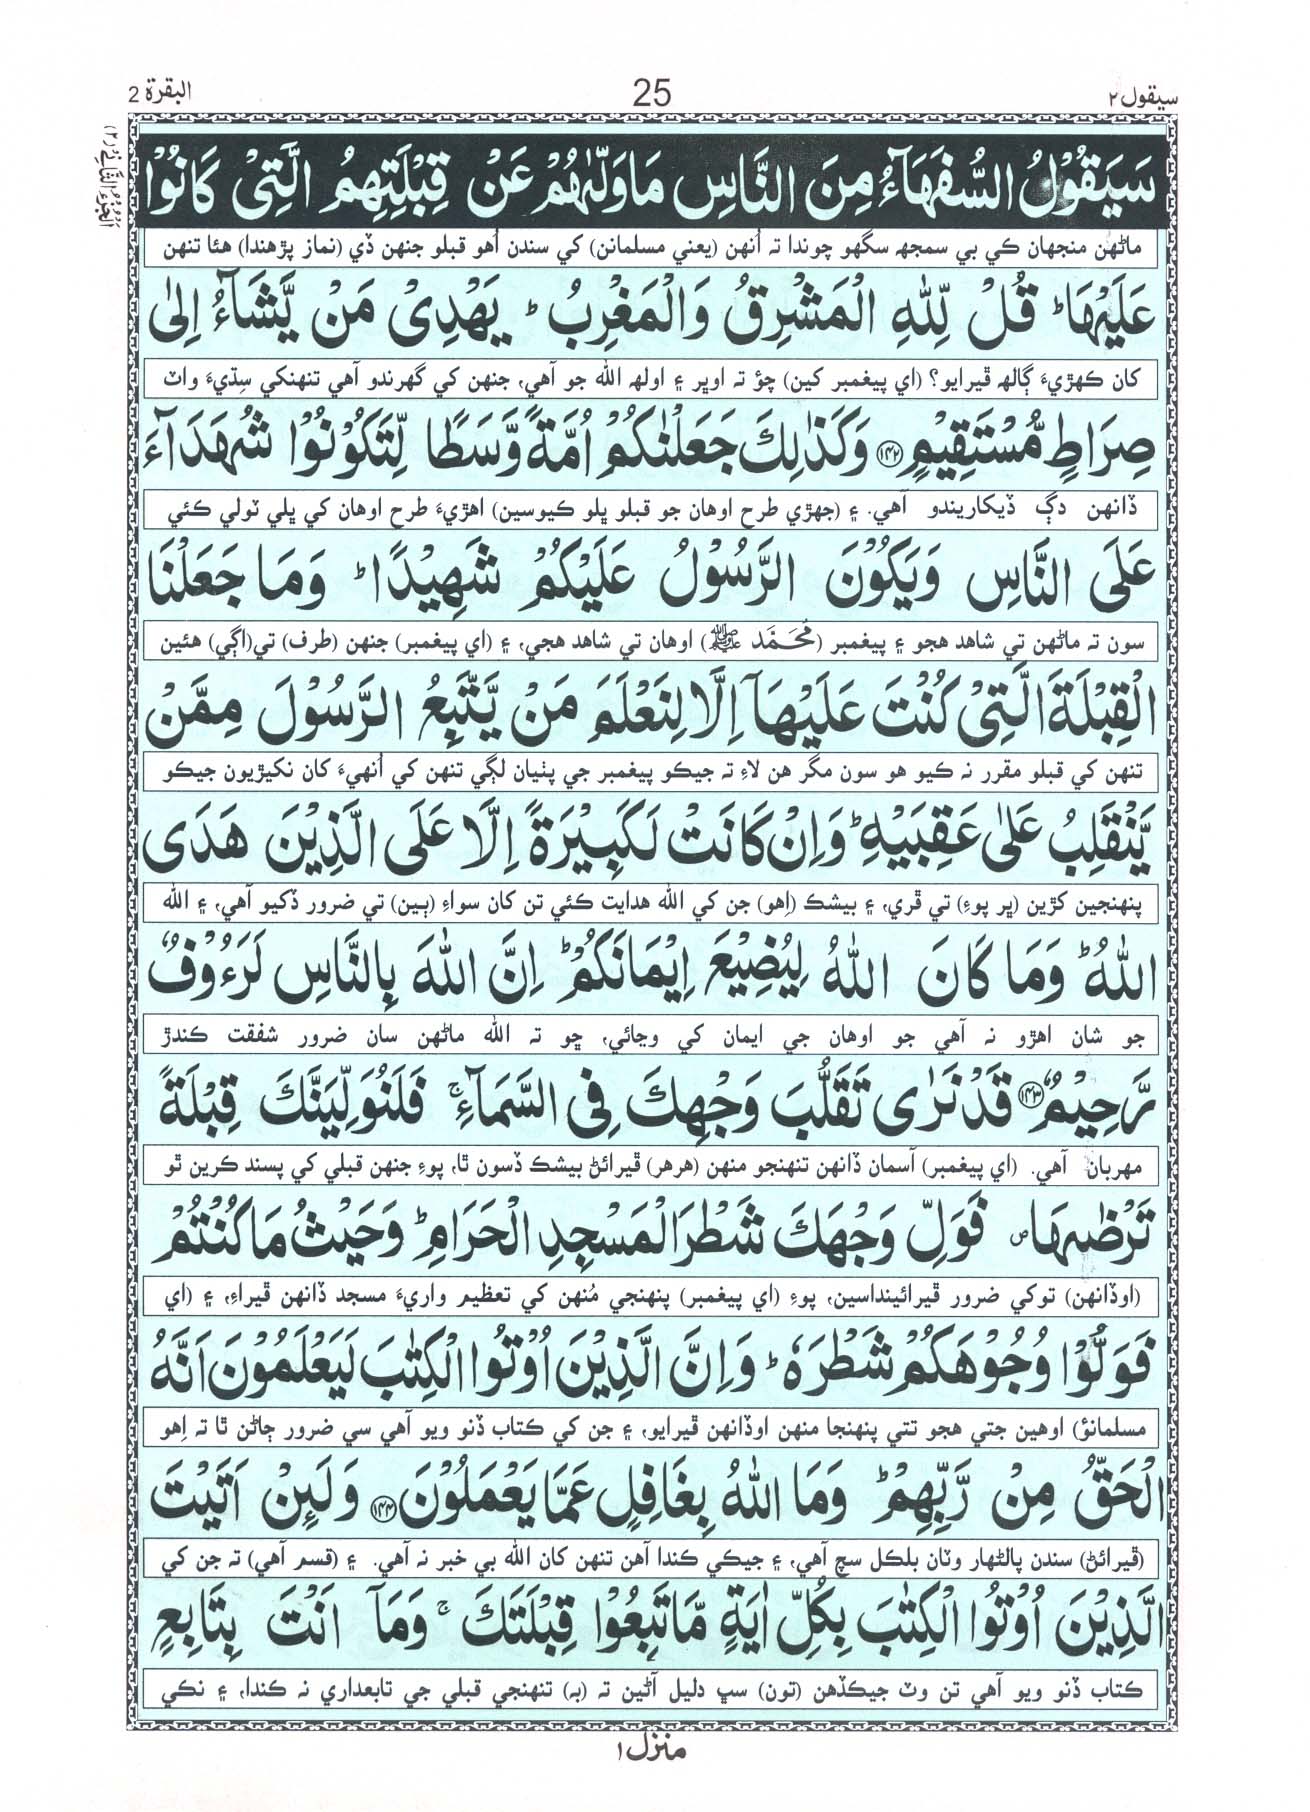 سيقول ٢
25
البقرة 2
اَلْجُزْءُ الثَّانِيْ (٢)
سَيَقُوْلُ السُّفَهَآءُ مِنَ النَّاسِ مَا وَلّٰىهُمْ عَنْ قِبْلَتِهِمُ الَّتِيْ كَانُوْا
ماڻهن منجهان ڪي بي سمجهه سگهو چوندا تہ اُنهن (يعني مسلمانن) کي سندن اُهو قبلو جنهن ڏي (نماز پڙهندا) هئا تنهن
عَلَيْهَا ؕ قُلْ لِّلّٰهِ الْمَشْرِقُ وَالْمَغْرِبُ ؕ يَهْدِيْ مَنْ يَّشَآءُ اِلٰى
کان ڪهڙيءَ ڳالهه ڦيرايو؟ (اي پيغمبر کين) چؤ تہ اوڀر ۽ اولهه الله جو آهي، جنهن کي گهرندو آهي تنهنکي سِڌيءَ واٽ
صِرَاطٍ مُّسْتَقِيْمٍ ﴿۱۴۲﴾ وَكَذٰلِكَ جَعَلْنٰكُمْ اُمَّةً وَّسَطًا لِّتَكُوْنُوْا شُهَدَآءَ
ڏانهن دڳ ڏيکاريندو آهي. ۽ (جهڙي طرح اوهان جو قبلو ڀلو ڪيوسين) اهڙيءَ طرح اوهان کي ڀلي ٽولي ڪئي
عَلَى النَّاسِ وَيَكُوْنَ الرَّسُوْلُ عَلَيْكُمْ شَهِيْدًا ؕ وَمَا جَعَلْنَا
سون تہ ماڻهن تي شاهد هجو ۽ پيغمبر (مُحَمَّد ﷺ) اوهان تي شاهد هجي، ۽ (اي پيغمبر) جنهن (طرف) تي(اڳي) هئين
الْقِبْلَةَ الَّتِيْ كُنْتَ عَلَيْهَآ اِلَّا لِنَعْلَمَ مَنْ يَّتَّبِعُ الرَّسُوْلَ مِمَّنْ
تنهن کي قبلو مقرر نہ ڪيو هو سون مگر هن لاءِ تہ جيڪو پيغمبر جي پٺيان لڳي تنهن کي اُنهيءَ کان نکيڙيون جيڪو
يَّنْقَلِبُ عَلٰى عَقِبَيْهِ ؕ وَاِنْ كَانَتْ لَكَبِيْرَةً اِلَّا عَلَى الَّذِيْنَ هَدَى
پنهنجين کڙين (ڀر پوءِ) تي ڦري، ۽ بيشڪ (اِهو) جن کي الله هدايت ڪئي تن کان سواءِ (ٻين) تي ضرور ڏکيو آهي، ۽ الله
اللّٰهُ ؕ وَمَا كَانَ اللّٰهُ لِيُضِيْعَ اِيْمَانَكُمْ ؕ اِنَّ اللّٰهَ بِالنَّاسِ لَرَءُوْفٌ
جو شان اهڙو نہ آهي جو اوهان جي ايمان کي وڃائي، ڇو تہ الله ماڻهن سان ضرور شفقت ڪندڙ
رَّحِيْمٌ ﴿۱۴۳﴾ قَدْ نَرٰى تَقَلُّبَ وَجْهِكَ فِي السَّمَآءِ ۚ فَلَنُوَلِّيَنَّكَ قِبْلَةً
مهربان آهي. (اي پيغمبر) آسمان ڏانهن تنهنجو منهن (هرهر) ڦيرائڻ بيشڪ ڏسون ٿا، پوءِ جنهن قبلي کي پسند ڪرين ٿو
تَرْضٰىهَا ۪ فَوَلِّ وَجْهَكَ شَطْرَ الْمَسْجِدِ الْحَرَامِ ؕ وَحَيْثُ مَا كُنْتُمْ
(اوڏانهن) توکي ضرور ڦيرائينداسين، پوءِ (اي پيغمبر) پنهنجي مُنهن کي تعظيم واريءَ مسجد ڏانهن ڦيراءِ، ۽ (اي
فَوَلُّوْا وُجُوْهَكُمْ شَطْرَهٗ ؕ وَاِنَّ الَّذِيْنَ اُوْتُوا الْكِتٰبَ لَيَعْلَمُوْنَ اَنَّهُ
مسلمانئو) اوهين جتي هجو تتي پنهنجا منهن اوڏانهن ڦيرايو، ۽ جن کي ڪتاب ڏنو ويو آهي سي ضرور ڄاڻن ٿا تہ اِهو
الْحَقُّ مِنْ رَّبِّهِمْ ؕ وَمَا اللّٰهُ بِغَافِلٍ عَمَّا يَعْمَلُوْنَ ﴿۱۴۴﴾ وَلَئِنْ اَتَيْتَ
(ڦيرائڻ) سندن پالڻهار وٽان بلڪل سچ آهي، ۽ جيڪي ڪندا آهن تنهن کان الله بي خبر نہ آهي. ۽ (قسم آهي) تہ جن کي
الَّذِيْنَ اُوْتُوا الْكِتٰبَ بِكُلِّ اٰيَةٍ مَّا تَبِعُوْا قِبْلَتَكَ ۚ وَمَآ اَنْتَ بِتَابِعٍ
ڪتاب ڏنو ويو آهي تن وٽ جيڪڏهن (تون) سڀ دليل آڻين تہ (بہ) تنهنجي قبلي جي تابعداري نہ ڪندا، ۽ نڪي
منزل ١